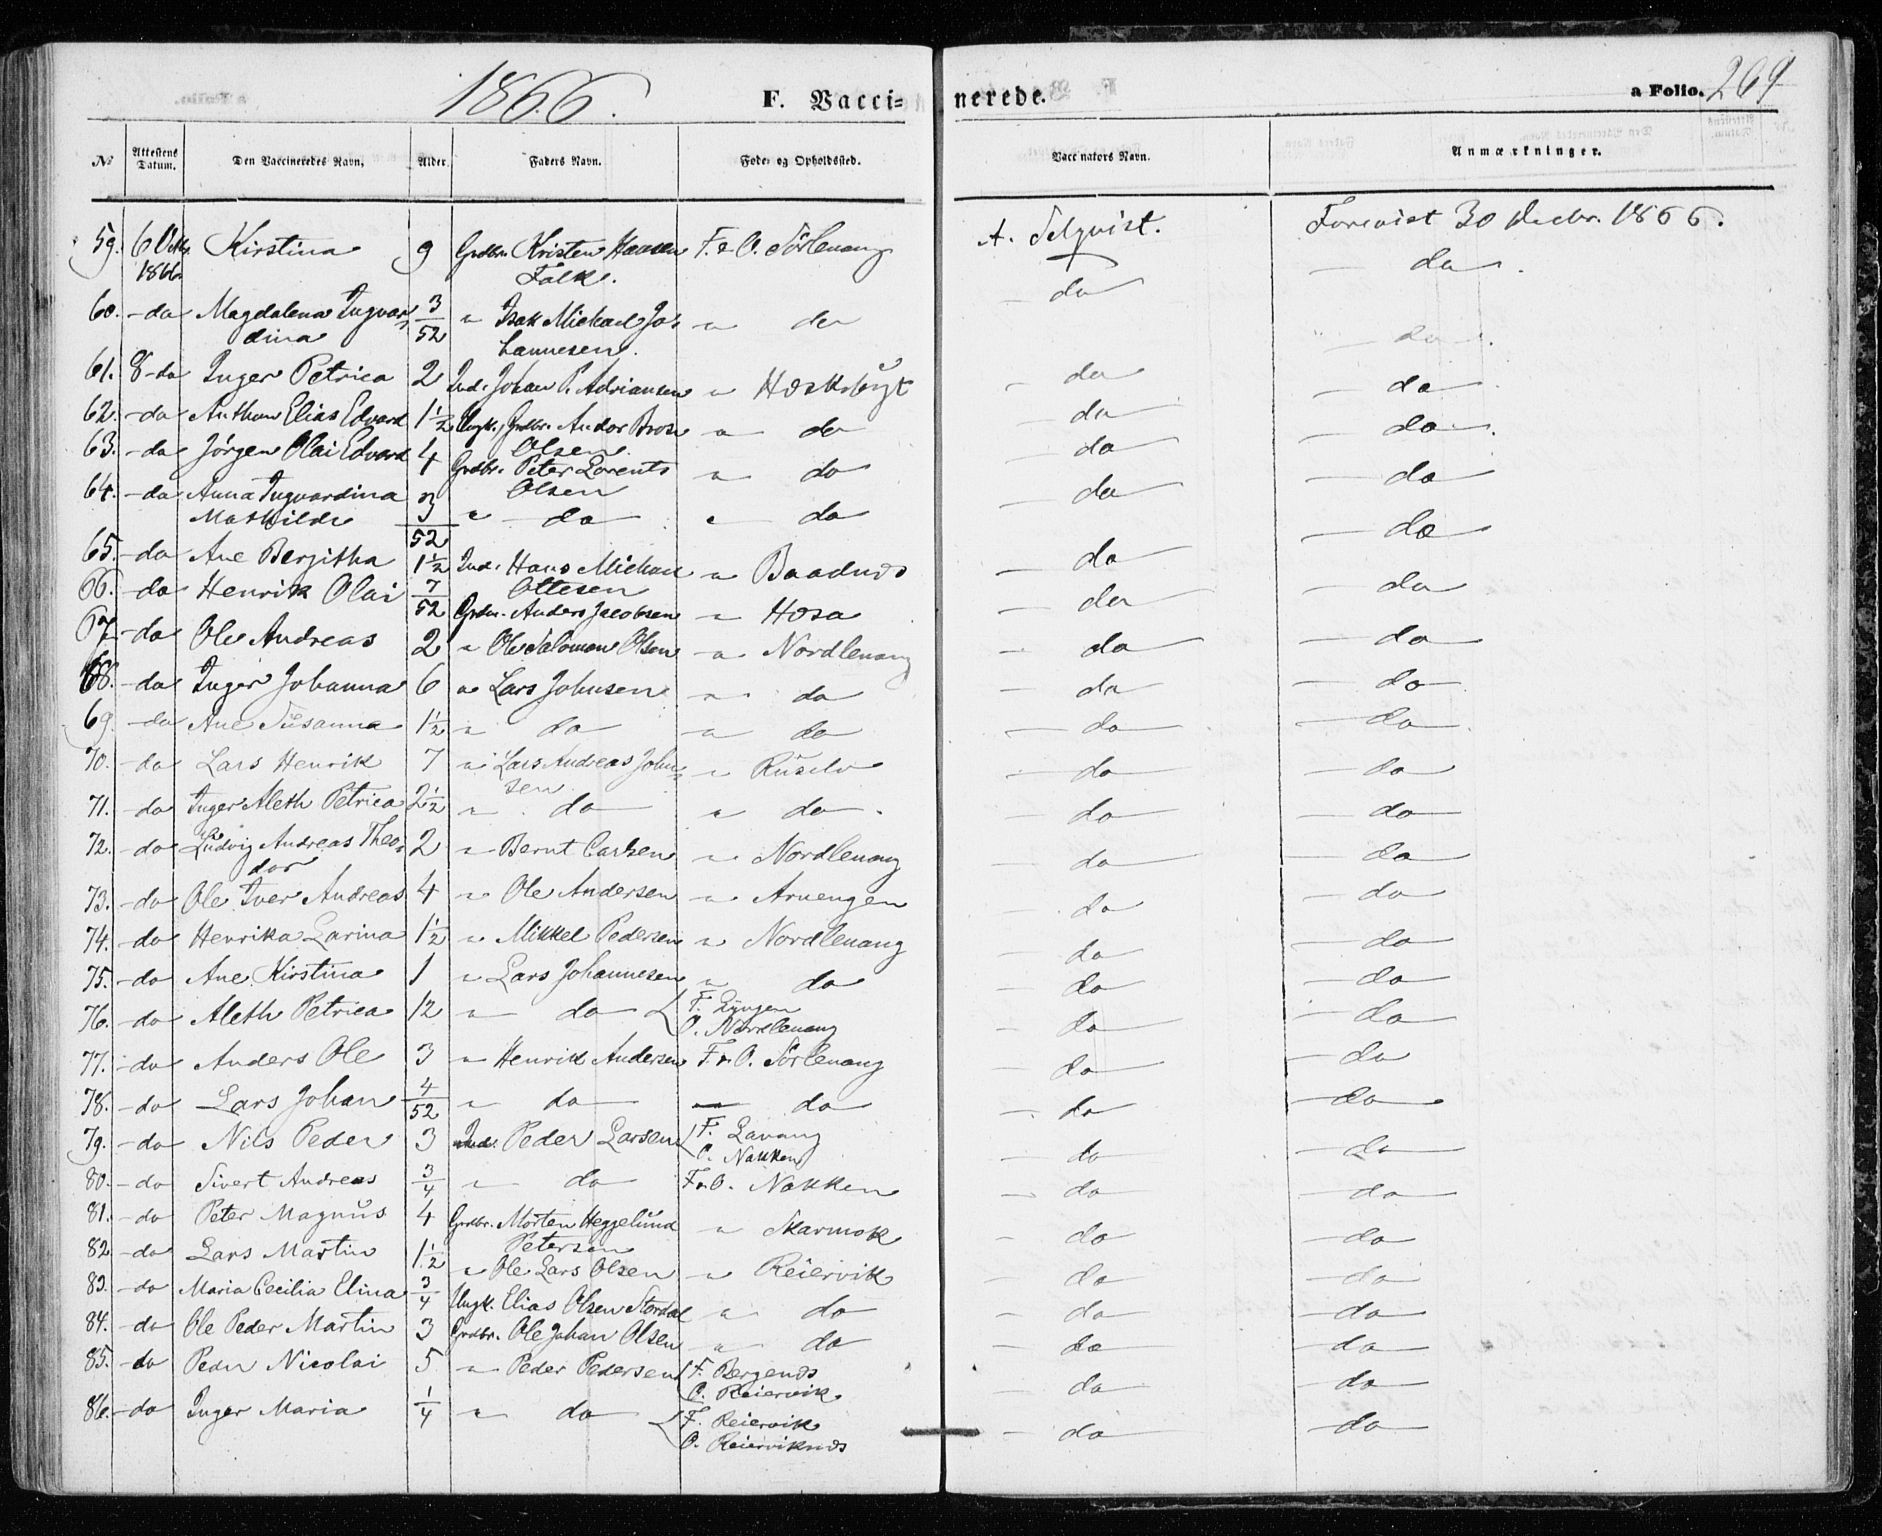 1866. F. Vacci= nerede. a Folio. 269
No Attestens Datum. Den Vaccineredes Navn. Alder. Faders Navn. Føde- og Opholdssted. Vaccinators Navn. Anmærkninger.
59. 6 Octbr. 1866 Kirstina 9 Grdbr. Kristen Hansen Falk. F. & O. Sörlenang A. Selqvist. Forevist 30 Decbr. 1866.
60. - do Magdalena Ingvardina 3/52 " Isak Michael Johannesen. " do - do - do
61. 8 - do Inger Petrica 2 Ind. Johan P. Adriansen " Hoskobygt - do - do
62. - do Anthon Elias Edvard 1 1/2 Ungk. Grdbr. Andor Olsen " do - do - do
63. - do Jørgen Olai Edvard 4 Grdbr. Peter Lorents Olsen " do - do - do
64. - do Anna Ingvardina Mathilde 3/52 " do " do - do - do
65. - do Ane Bergitha 1 1/2 Ind. Hans Michael Ottesen " Baadnæs - do - do
66. - do Henrik Olai 7/52 Grdm. Anders Jacobsen " Hosa - do - do
67. - do Ole Andreas 2 " Ole Salomon Olsen " Nordlenang - do - do
68. - do Inger Johanna 6 " Lars Johnsen " do - do - do
69. - do Ane Susanna 1 1/2 " do " do - do - do
70. - do Lars Henrik 7 " Lars Andreas Johnsen " Ruselv - do - do
71. - do Inger Aleth Petrica 2 1/2 " do " do. - do - do
72. - do Ludvig Andreas Theodor 2 " Bernt Carlsen " Nordlenang - do - do
73. - do Ole Iver Andreas 4 " Ole Andersen " Arnengen - do - do
74. - do Henrika Larina 1 1/2 " Mikkel Pedersen " Nordlenang - do - do
75. - do Ane Kirstina 1 " Lars Johannesen " do - do - do
76. - do Aleth Petrica 12 " do F. Lyngen O. Nordlenang - do - do
77. - do Anders Ole 3 " Henrik Andersen F. & O. Sörlenang - do - do
78. - do Lars Johan 4/52 " do - do - do - do
79. - do Nils Peder 3 Ind. Peder Larsen F. Lavang O. Nakken - do - do
80. - do Sivert Andreas 3/4 " do F. & O. Nakken - do - do
81. - do Peter Magnus 4 Grdbr. Morten Heggelund Petersen " Skarmok - do - do
82. - do Lars Martin 1 1/2 " Ole Lars Olsen " Reiervik - do - do
83. - do Maria Cecilia Elina 3/4 Ungk. Elias Olsen Stordal " do - do - do
84. - do Ole Peder Martin 3 Grdbr. Ole Johan Olsen " do - do - do
85. - do Peder Nicolai 5 " Peder Pedersen F. Bergenæs O. Reiervik - do - do
86. - do Inger Maria 1/4 " do F. Reiervik O. Reierviknæs - do - do